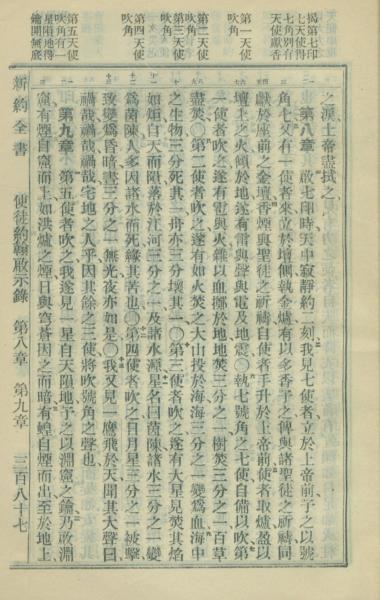 揭第七印
七天使得
七角別有
天使獻香
第一天使
吹角
第二天使
吹角
第三天使
吹角
第四天使
吹角
第五天使
吹角有一
星隕地得
鑰開無底
之淚上帝盡拭之
第八章啟七印時天中寂靜約二刻我見七使者立於上帝前予之以號
角七又有一使者來立於壇側執金爐有以多香予之俾與諸聖徒之祈禱同
獻於座前之金壇香煙與聖徒之祈禱自使者手升於上帝前使者取爐盈以
壇上之火傾於地遂有雷與聲與電及地震○執七號角之七使自備以吹第
一使者吹之遂有雹與火雜以血擲於地地焚三分之一樹焚三分之一百草
盡焚○第二使者吹之遂有如火焚之大山投於海海三分之一變爲血海中
之生物三分死其一舟亦三分壞其一○第三使者吹之遂有大星見焚其焰
如炬自天而隕落於江河三分之一及諸水源星名曰茵陳諸水三分之一變
爲茵陳人多因諸水而死緣其苦也○第四使者吹之日月星三分之一被擊
致變爲昏暗晝三分之一無光夜亦如是○我又見一鷹飛於天聞其大聲曰
禍哉禍哉禍哉宅地之人乎因其餘之三使將吹號角之聲也
第九章第五使者吹之我遂見一星自天隕地予之以淵窟之鑰乃啟淵
窟有煙自窟而上如洪爐之煙日與穹蒼因之而暗有蝗自煙而出至於地上
新約全書
使徒約翰啟示錄
第八章
第九章
三百八十七